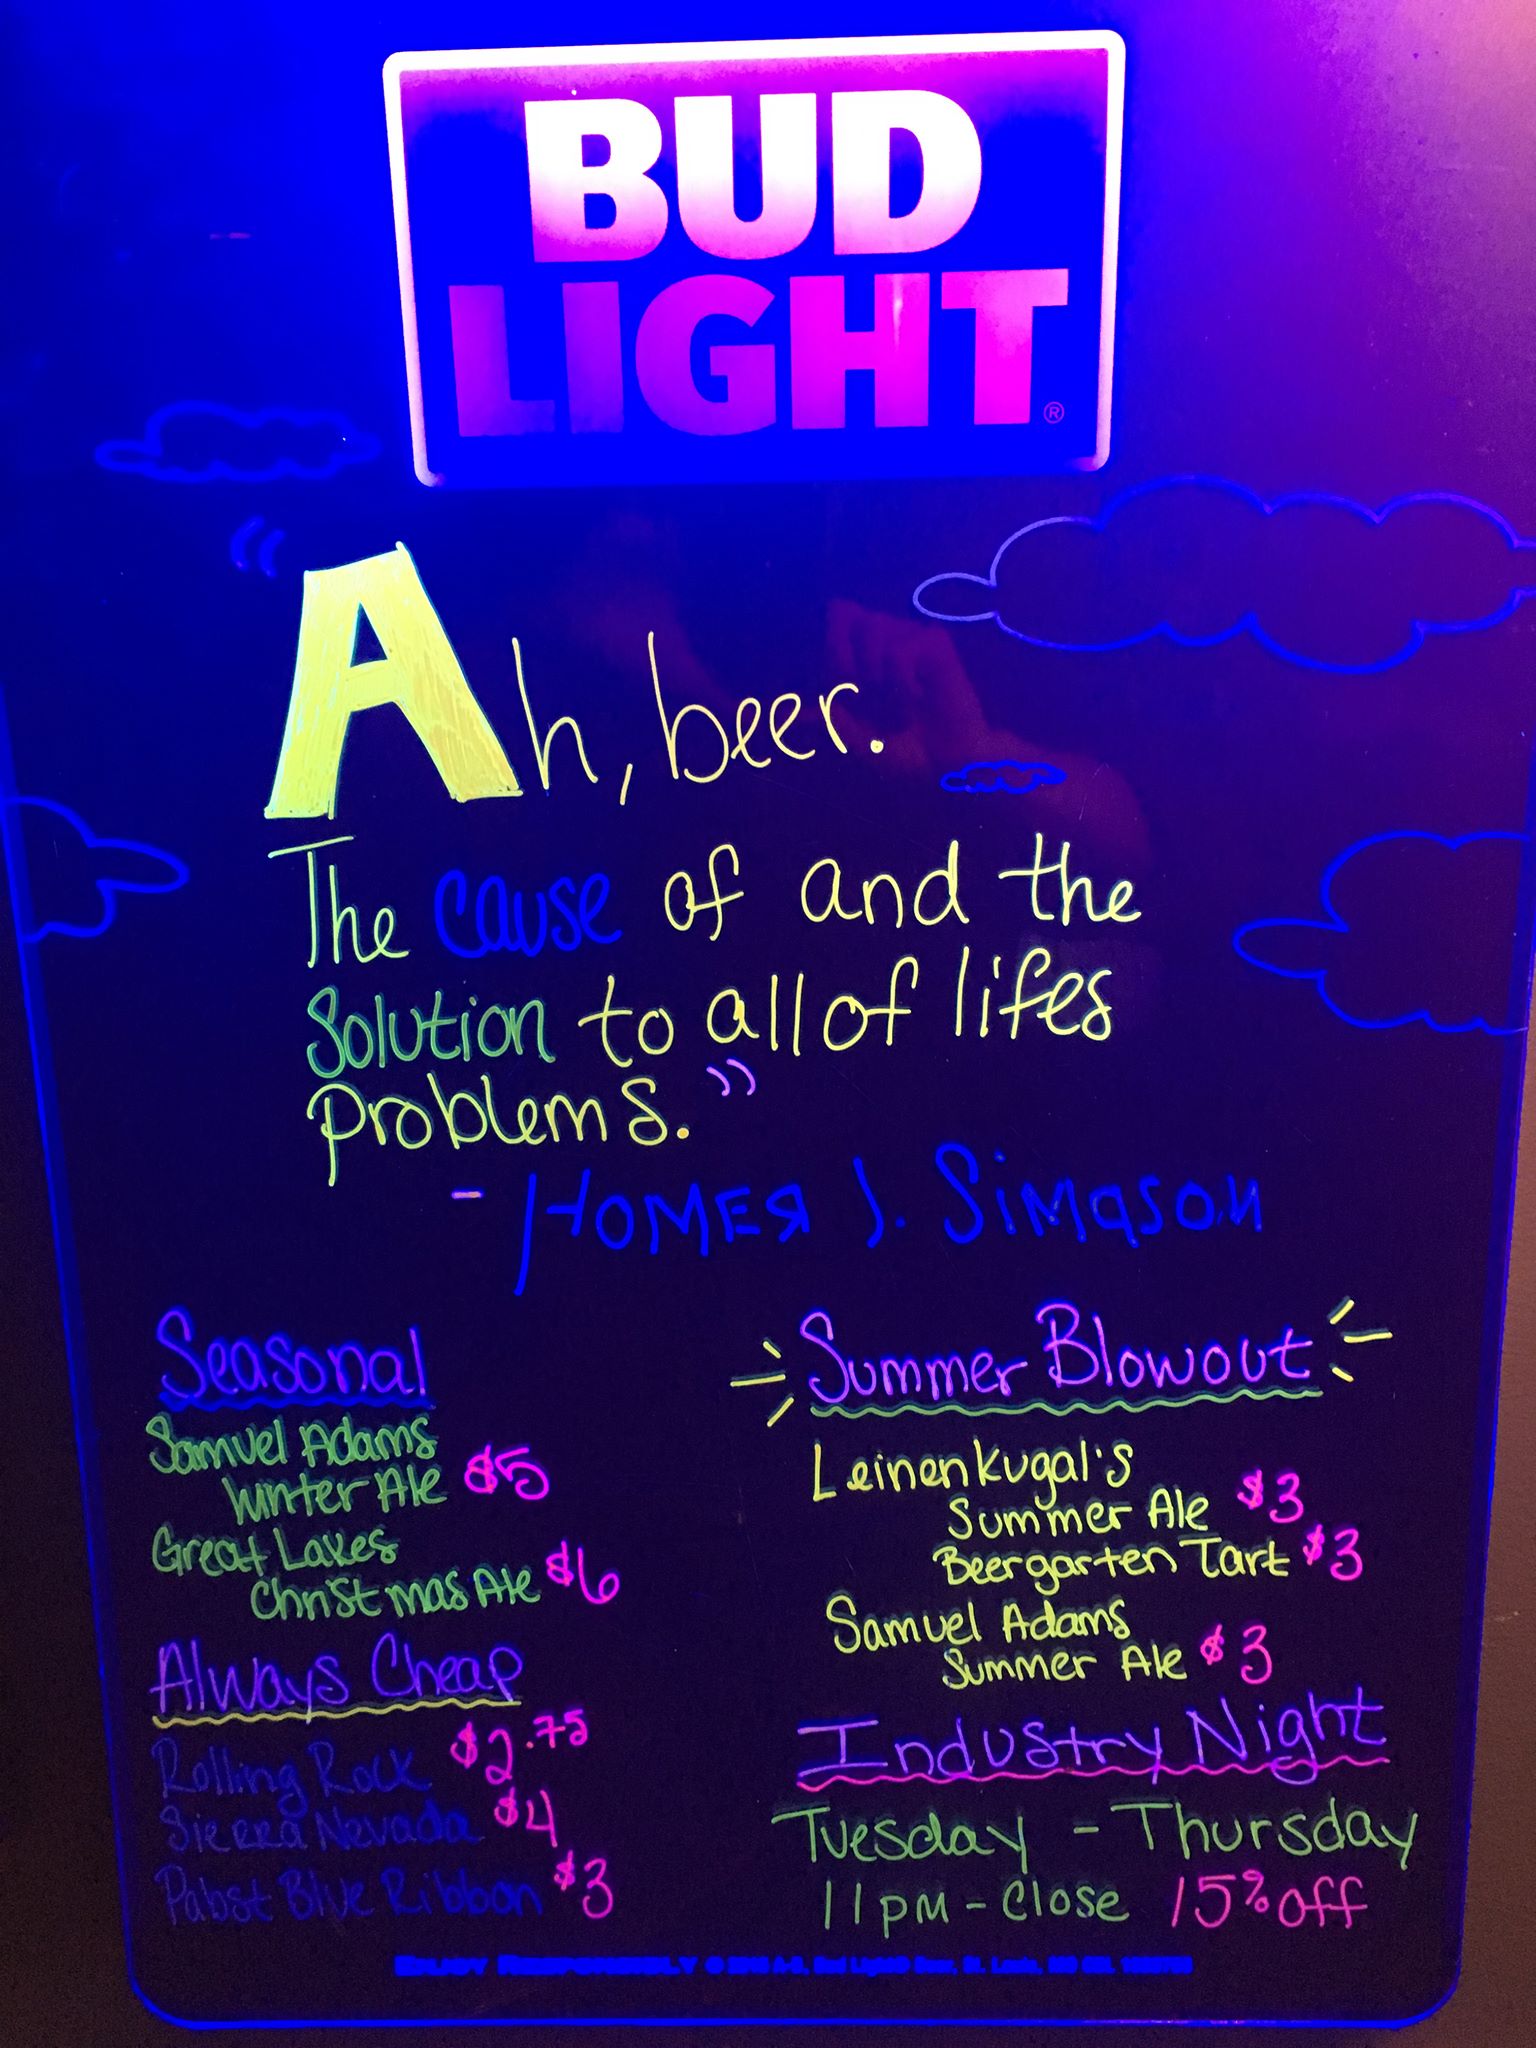 BUD
LIGHT®
"Ah, beer.
The cause of and the
solution to all of lifes
problems."
- HOMER J. SIMPSON
Seasonal
Samuel Adams
Winter Ale $5
Great Lakes
Christmas Ale $6
Always Cheap
Rolling Rock $2.75
Sierra Nevada $4
Pabst Blue Ribbon $3
Summer Blowout
Leinenkugal's
Summer Ale $3
Beergarten Tart $3
Samuel Adams
Summer Ale $3
Industry Night
Tuesday - Thursday
11pm - Close 15% off
ENJOY RESPONSIBLY © A-B, Bud Light® Beer, St. Louis, MO